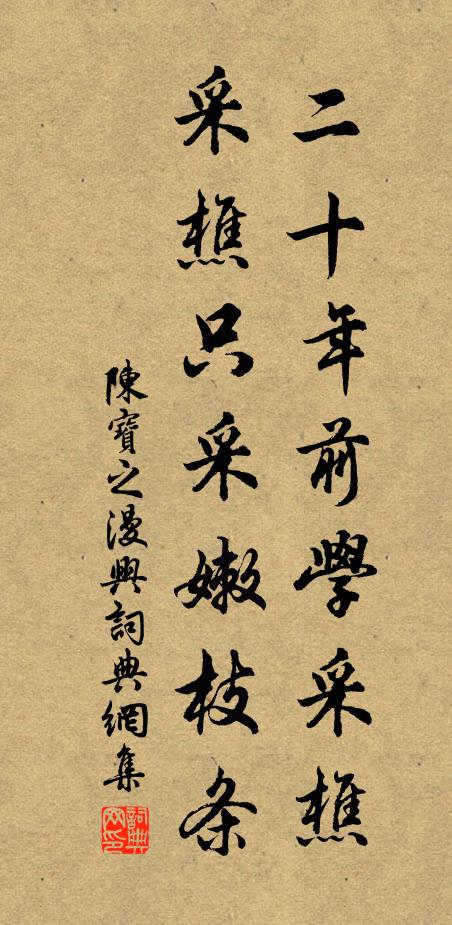 二十年前學采樵
采樵只采嫩枝条
陳寶之漫興詞典網集
詞典網印